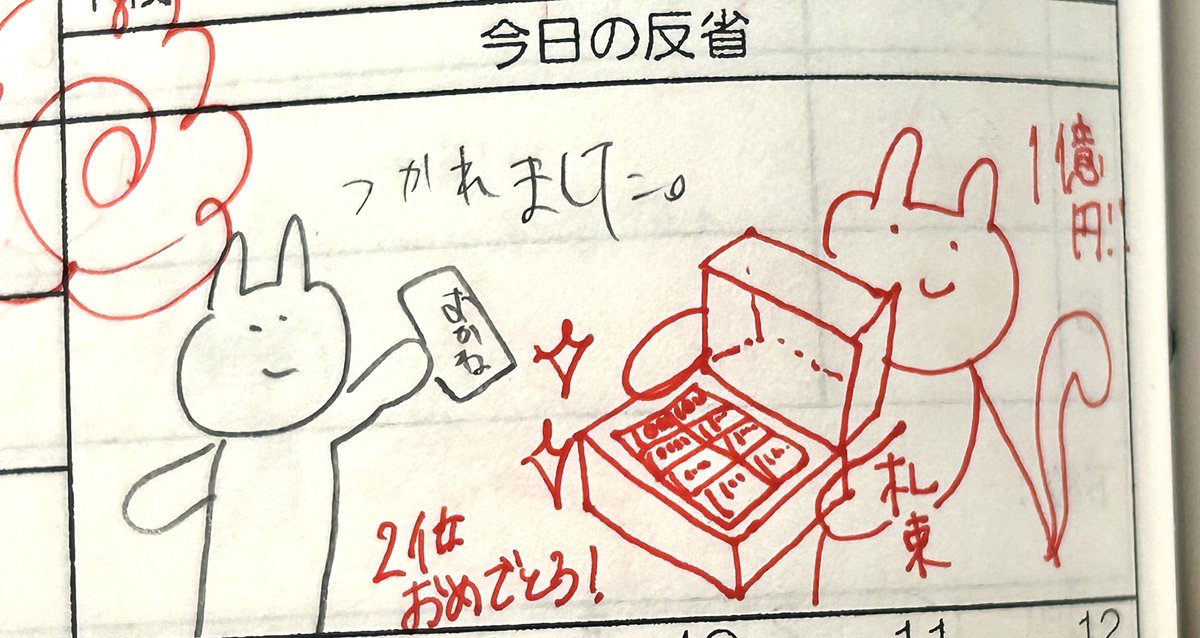 今日の反省
つかれました。
おかね
1億
円!!
札
束
2位
おめでとう!
10
11
12